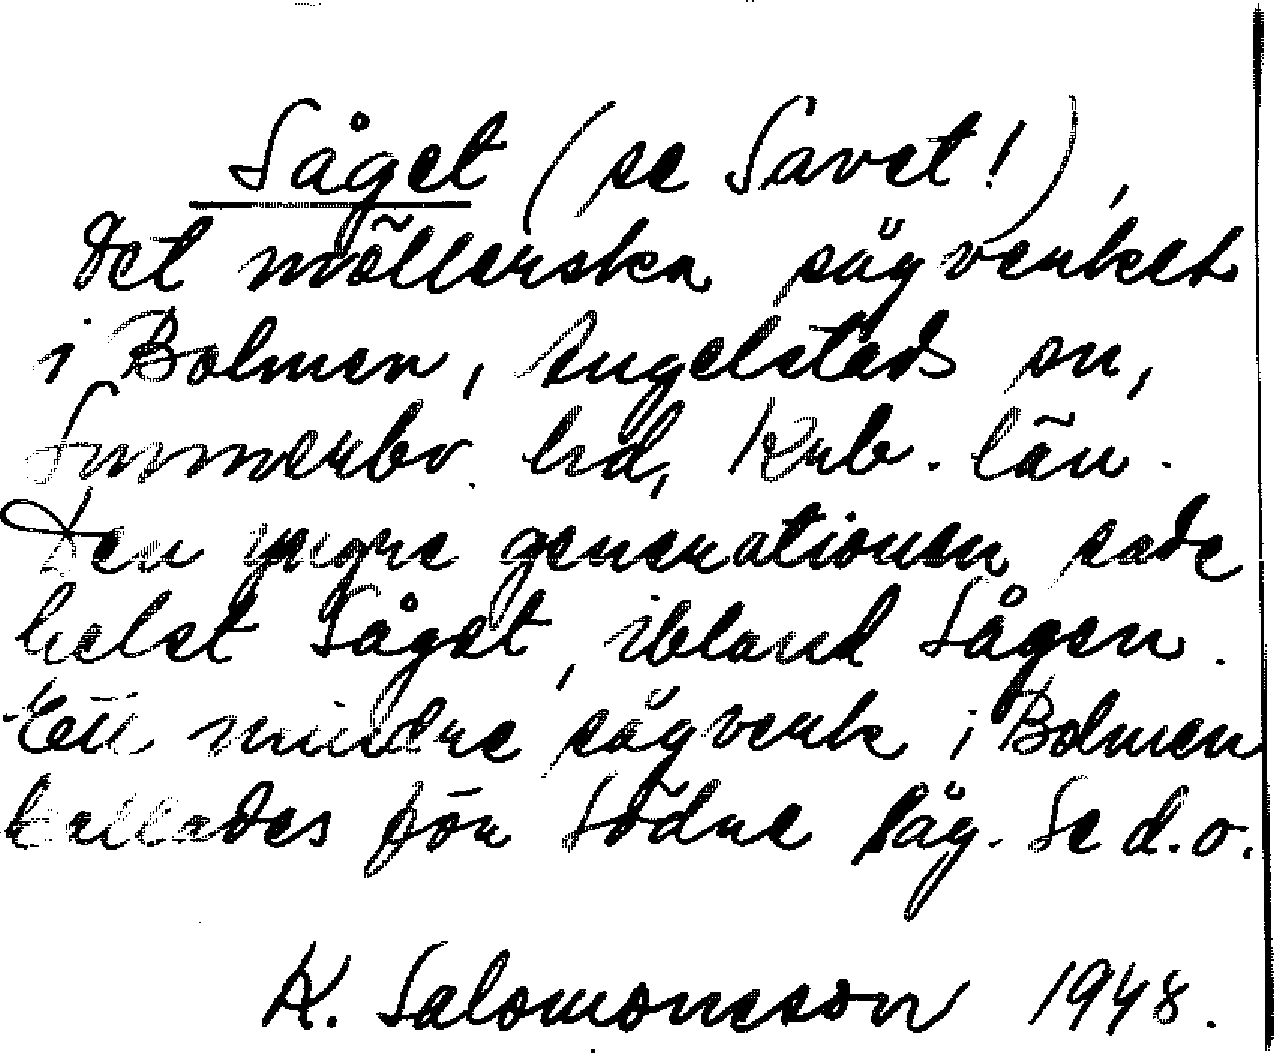 Såget (se Savet!),
det möllerska sågverket
i Bolmen, Angelstads sn,
Sunnerbo hd, Krb. län.
Den yngre generationen sade
helst Såget, ibland Sågen.
Ett mindre sågverk i Bolmen
kallades för Södre Såg. Se d.o.
K. Salomonsson 1948.